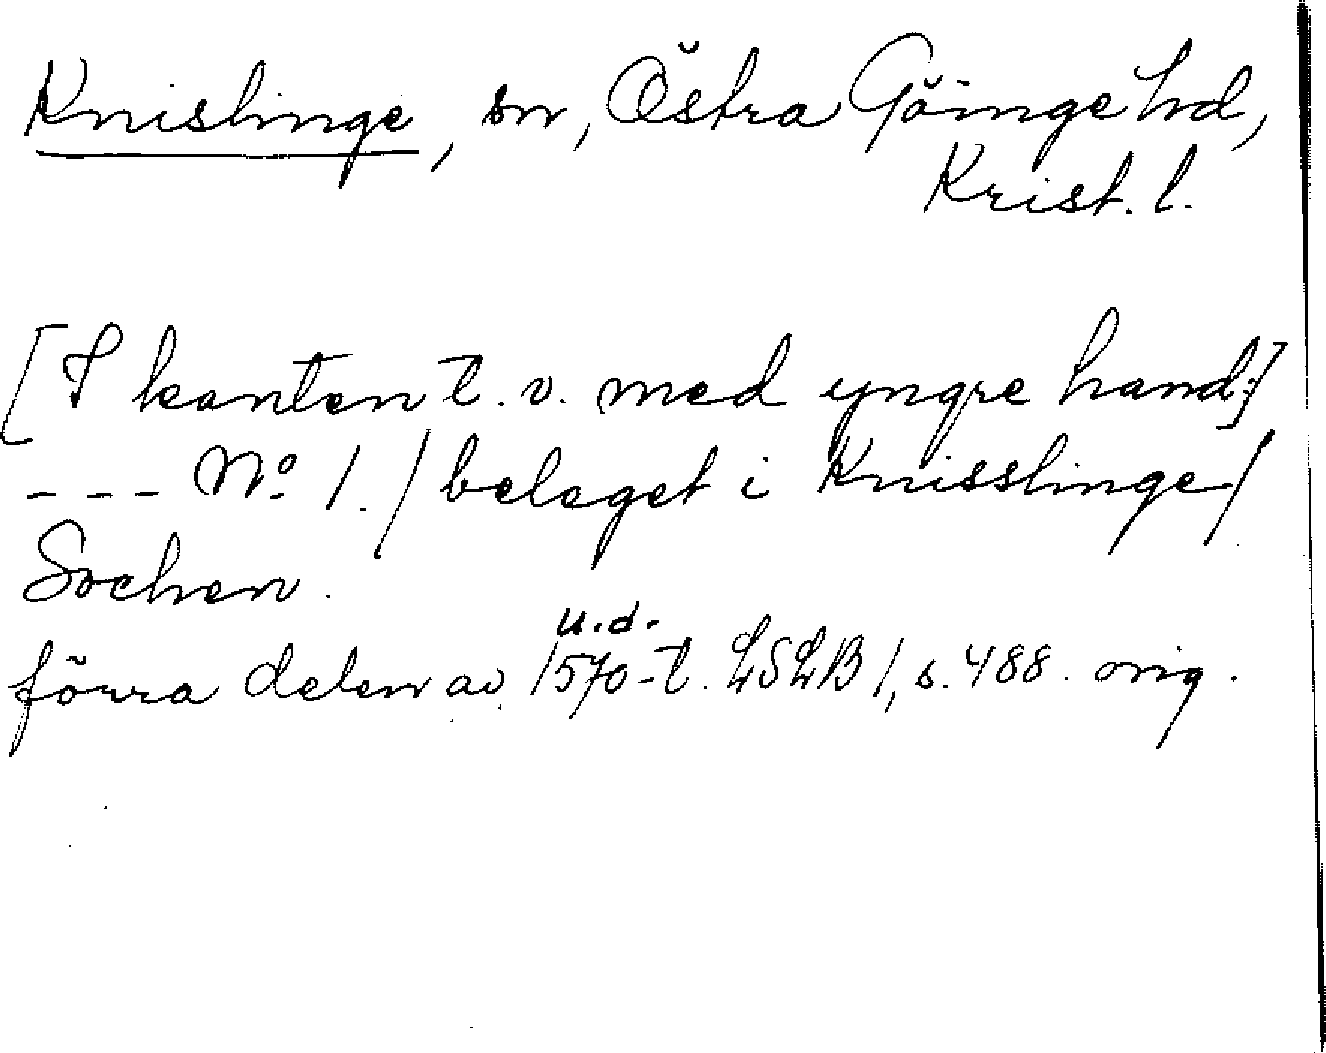 Knislinge, sn, Östra Göinge hd,
Krist. l.
[I kanten t. v. med yngre hand:]
--- No 1. / belaget i Knisslinge /
Sochen.
u.d.
förra delen av 1570-t. LSLB 1, s. 488. orig.